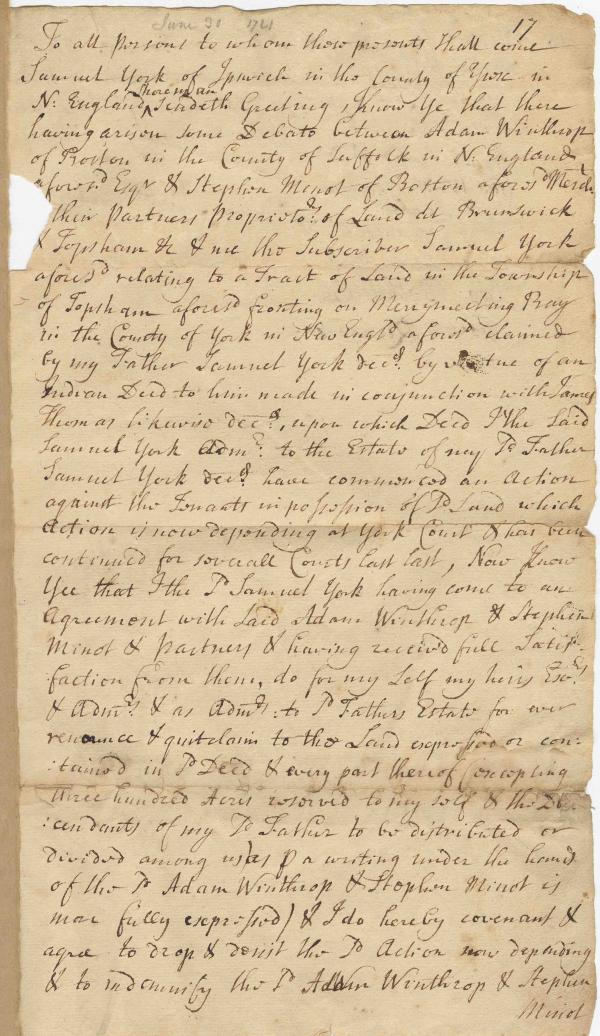 June 30 1721
17
To all Persons to whom these presents Shall come
Samuel York of Ipswich in the County of in
N: England Sendeth Greeting, know Ye that there
having arison some Debate between Adam Winthrop
of Boston in the County of Suffolk in N: England
afores:d Esqr & Stephen Minot of Boston afores:d Merch:t
their Partners Propriet:rs of Land at Brunswick
& Topsham &c & me the Subscriber Samuel York
afores:d relating to a Tract of Land in the Township
of Topsham afores:d fronting on Merrymeeting Bay
in the County of York in New Engl:d afores:d claimed
by my Father Samuel York dec:d by vertue of an
Indian Deed to him made in conjunction with James
Thomas likewise dec:d, upon which Deed I the Said
Samuel York Adm:r to the Estate of my S:d Father
Samuel York dec:d have commenced an Action
against the Tenants in possession of S:d Land which
Action is now depending at York Court & has been
continued for severall Courts last last, Now know
Yee that I the S:d Samuel York having come to an
Agreement with Said Adam Winthrop & Stephen
Minot & Partners & having received full Satis-
:faction from them, do for my Self my heirs Exe:rs
& Adm:rs & as Adm:r to S:d Fathers Estate for ever
renounce & quitclaim to the Land expressed or con:
:tained in S:d Deed & every part thereof (excepting
three hundred Acres reserved to my self & the Des
:cendants of my S:d Father to be distributed or
divided among us) as p a writing under the hand
of the S:d Adam Winthrop & Stephen Minot is
more fully expressed) & I do hereby covenant &
agree to drop & desist the S:d Action now depending
& to indemnify the S:d Adam Winthrop & Stephen
Minot